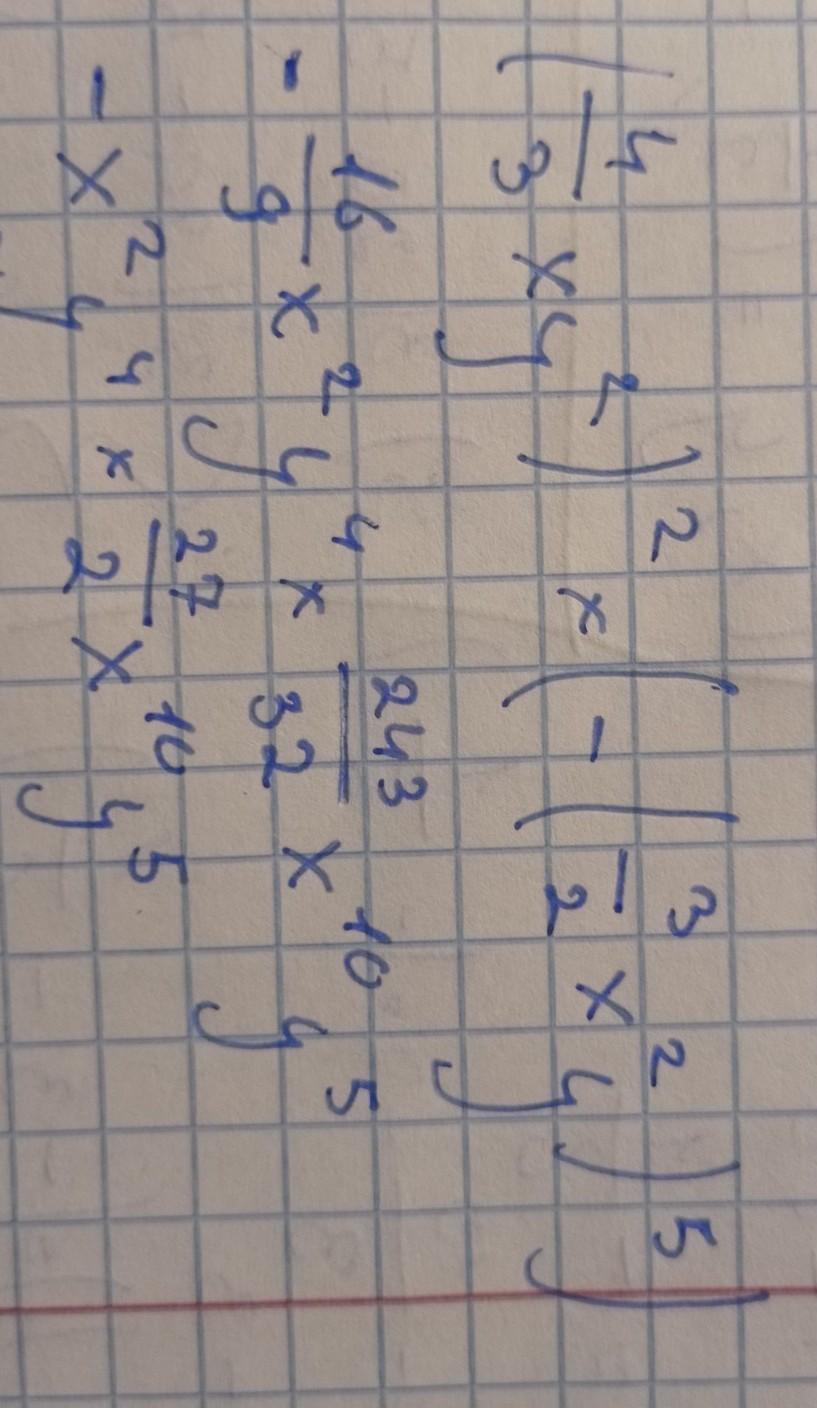 (4/3 xy²)² × (-(3/2 x²y)⁵)
- 16/9 x²y⁴ × 243/32 x¹⁰y⁵
- x²y⁴ × 27/2 x¹⁰y⁵